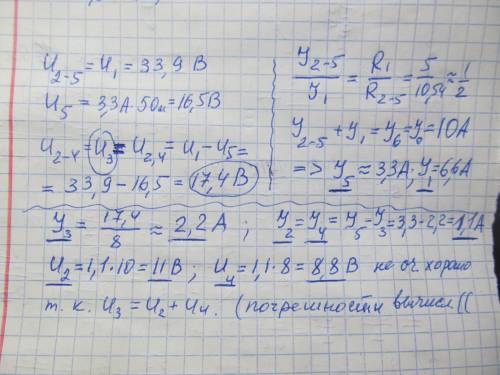 U₂₋₅ = U₁ = 33,9 В
U₅ = 3,3А · 5Ом = 16,5В
U₂₋₄ = U₃ = U₂,₄ = U₁ - U₅ =
= 33,9 - 16,5 = 17,4 В
У₂₋₅/У₁ = R₁/R₂₋₅ = 5/10,54 ≈ 1/2
У₂₋₅ + У₁ = У₆ = У₀ = 10А
=> У₅ ≈ 3,3А; У₁ = 6,6А
У₃ = 17,4/8 ≈ 2,2А ; У₂ = У₄ = У₅ - У₃ = 3,3 - 2,2 = 1,1А
U₂ = 1,1 · 10 = 11В ; U₄ = 1,1 · 8 = 8,8В не оч. хорошо
т. к. U₃ = U₂ + U₄. (погрешности вычисл ((